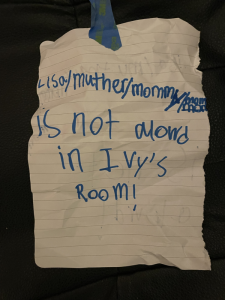 Lisa/muther/mommy/mom
is not alowd
in Ivy's
Room!